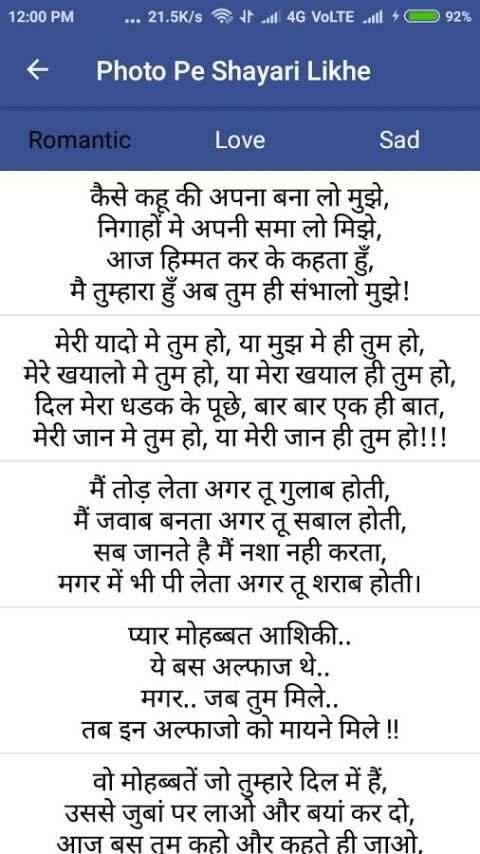 12:00 PM ... 21.5K/s 4G VoLTE 92%
Photo Pe Shayari Likhe
Romantic Love Sad
कैसे कहू की अपना बना लो मुझे,
निगाहों मे अपनी समा लो मिझे,
आज हिम्मत कर के कहता हुँ,
मै तुम्हारा हुँ अब तुम ही संभालो मुझे!
मेरी यादो मे तुम हो, या मुझ मे ही तुम हो,
मेरे खयालो मे तुम हो, या मेरा खयाल ही तुम हो,
दिल मेरा धडक के पूछे, बार बार एक ही बात,
मेरी जान मे तुम हो, या मेरी जान ही तुम हो!!!
मैं तोड़ लेता अगर तू गुलाब होती,
मैं जवाब बनता अगर तू सबाल होती,
सब जानते है मैं नशा नही करता,
मगर में भी पी लेता अगर तू शराब होती।
प्यार मोहब्बत आशिकी..
ये बस अल्फाज थे..
मगर.. जब तुम मिले..
तब इन अल्फाजो को मायने मिले !!
वो मोहब्बतें जो तुम्हारे दिल में हैं,
उससे जुबां पर लाओ और बयां कर दो,
आज बस तुम कहो और कहते ही जाओ,